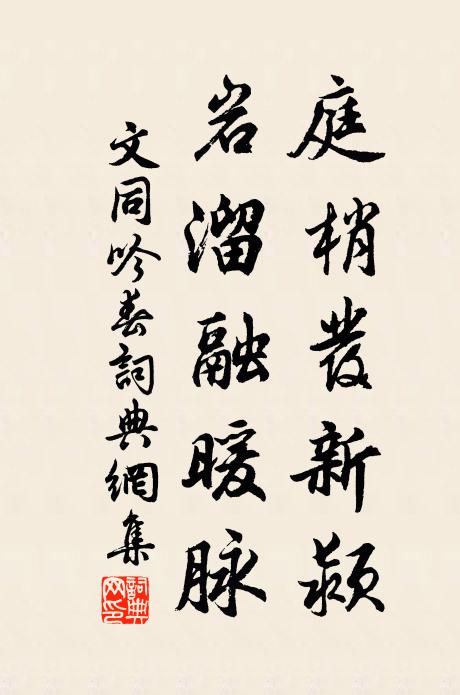 庭梢發新颖
岩溜融暖脉
文同吟春詞典網集
詞典網印